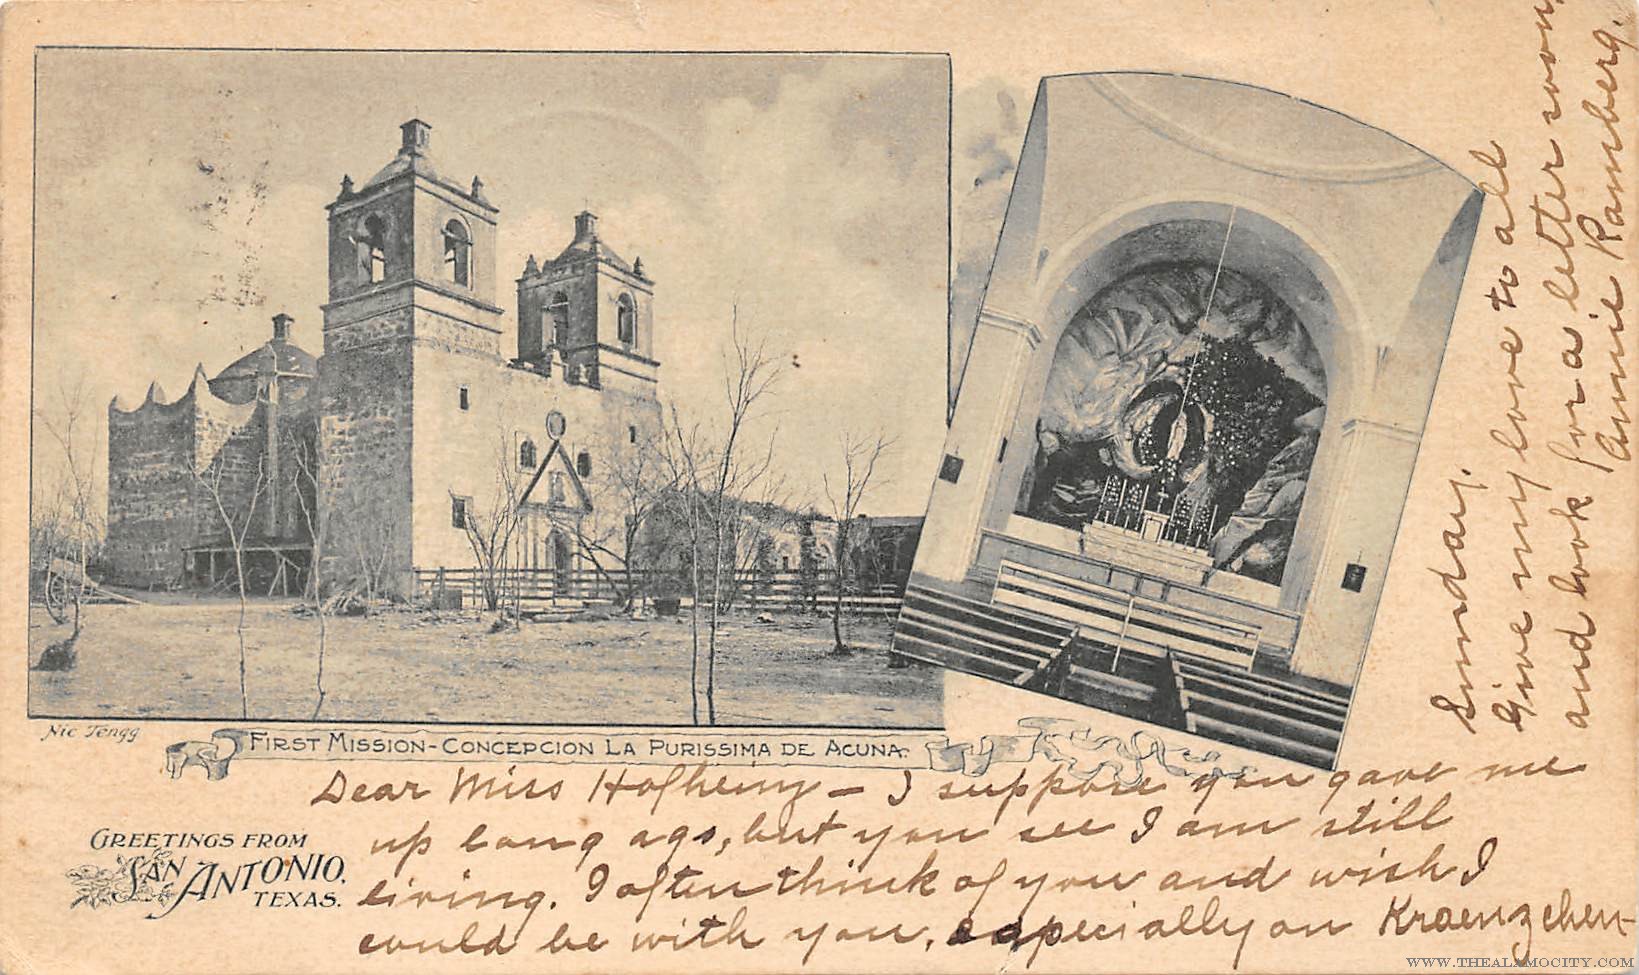 Nic Tengg
FIRST MISSION-CONCEPCION LA PURISSIMA DE ACUNA.
GREETINGS FROM
SAN ANTONIO,
TEXAS.
Dear Miss Hofheinz — I suppose you gave me
up long ago, but you see I am still
living. I often think of you and wish I
could be with you, especially on Kraenzchen-
Sunday.
Give my love to all
and look for a letter soon,
Annie Ramberg.
WWW.THEALAMOCITY.COM